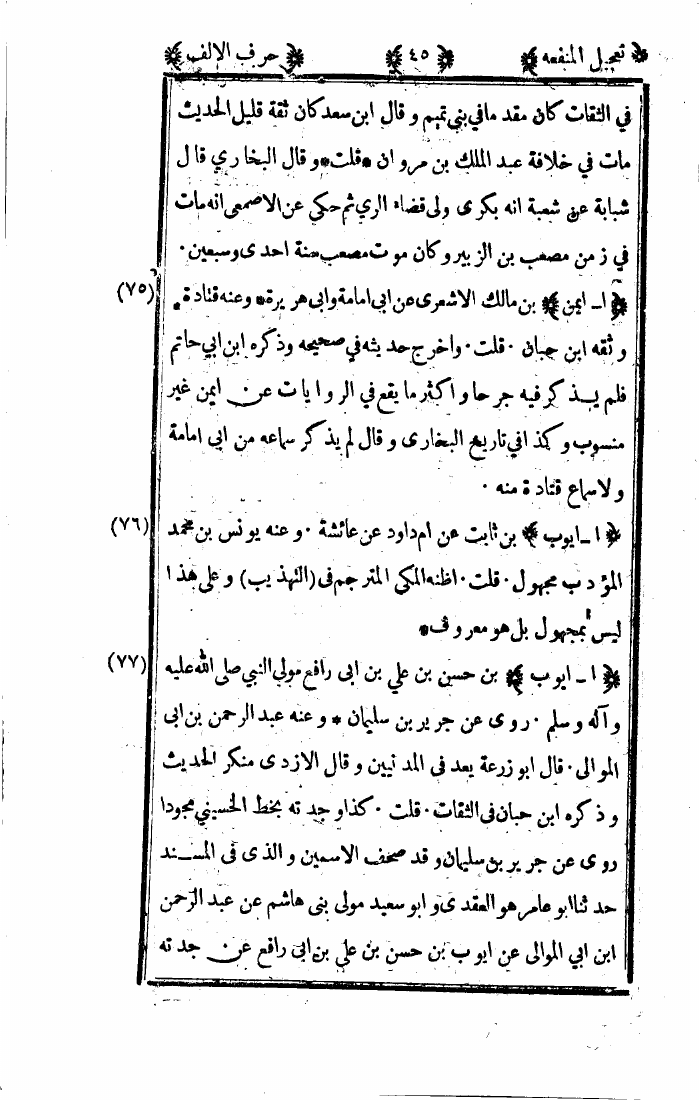 ﴿ تعجيل المنفعه ﴾ ﴿ ٤٥ ﴾ ﴿ حرف الالف ﴾
في الثقات كان مقدما في بني تميم وقال ابن سعد كان ثقة قليل الحديث
مات في خلافة عبد الملك بن مروان * قلت * وقال البخاري قال
شبابة عن شعبة انه بكرى ولى قضاء الري ثم حكي عن الاصمعي انه مات
في زمن مصعب بن الزبير وكان موت مصعب سنة احدى وسبعين .
﴿ ا ـ ايمن ﴾ بن مالك الاشعرى عن ابى امامة وابى هريرة * وعنه قتادة * (٧٥)
وثقه ابن حبان . قلت . واخرج حديثه في صحيحه وذكره ابن ابي حاتم
فلم يذكر فيه جرحا واكثر ما يقع في الروايات عن ايمن غير
منسوب وكذا في تاريخ البخارى وقال لم يذكر سماعه من ابى امامة
ولا سماع قتادة منه .
﴿ ا ـ ايوب ﴾ بن ثابت عن ام داود عن عائشة . وعنه يونس بن محمد (٧٦)
المؤدب مجهول . قلت . اظنه المكى المترجم فى (التهذيب) وعلى هذا
ليس بمجهول بل هو معروف *
﴿ ا ـ ايوب ﴾ بن حسن بن علي بن ابى رافع مولى النبي صلى الله عليه (٧٧)
وآله وسلم . روى عن جرير بن سليمان * وعنه عبد الرحمن بن ابى
الموالى . قال ابو زرعة يعد فى المدنيين وقال الازدى منكر الحديث
وذكره ابن حبان فى الثقات . قلت . كذا وجدته بخط الحسيني مجودا
روى عن جرير بن سليمان وقد صحف الاسمين والذى فى المسند
حدثنا ابو عامر هو العقدى وابو سعيد مولى بنى هاشم عن عبد الرحمن
ابن ابي الموالى عن ايوب بن حسن بن علي بن ابى رافع عن جدته